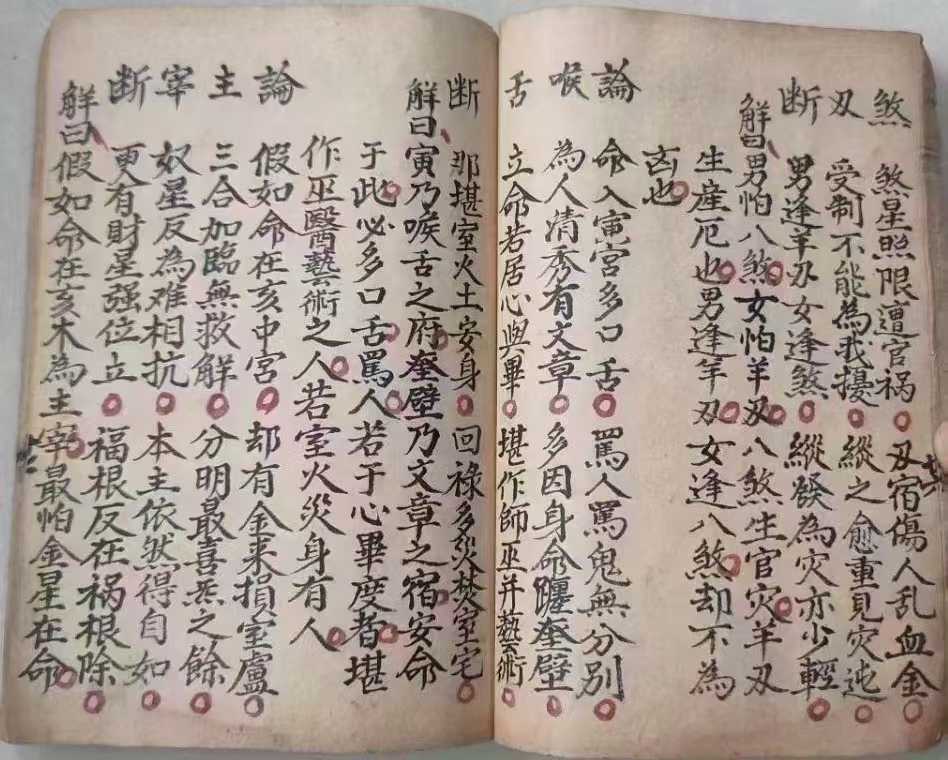 煞 煞星照限遭官祸 刃宿傷人乱血金
刃 受制不能為我擾 縱之愈重見灾迍
断 男逢羊刃女逢煞 縱發為灾亦少輕
解曰男怕八煞女怕羊刃八煞生官灾羊刃
生産厄也男逢羊刃女逢八煞却不為
凶也
論 命入寅宮多口舌 罵人罵鬼無分別
喉 為人清秀有文章 多因身命躔奎壁
舌 立命若居心與畢 堪作師巫并藝術
断 那堪室火土安身 回禄多災焚室宅
解曰寅乃喉舌之府奎壁乃文章之宿安命
于此必多口舌罵人若于心畢度者堪
作巫醫藝術之人若室火災身有人
論 假如命在亥中宮 却有金来損室盧
主 三合加臨無救解 分明最喜炁之餘
宰 奴星反為难相抗 本主依然得自如
断 更有財星强位立 福根反在祸根除
解曰假如命在亥木為主宰最怕金星在命